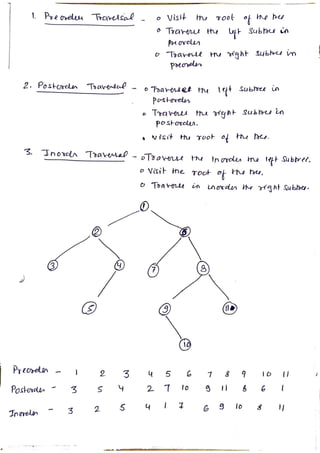 1. Preorder Traversal - o Visit the root of the tree
o Traverse the left Subtree in
preorder
o Traverse the right Subtree in
preorder
2. Postorder Traversal - o Traverse the left subtree in
postorder
o Traverse the right Subtree in
postorder.
o visit the root of the tree.
3. Inorder Traversal - o Traverse the Inorder the left Subtree.
o Visit the root of the tree.
o Traverse in inorder the right Subtree.
1
2 6
3 4 7 8
5 9 11
10
Preorder - 1 2 3 4 5 6 7 8 9 10 11
Postorder - 3 5 4 2 7 10 9 11 8 6 1
Inorder - 3 2 5 4 1 7 6 9 10 8 11